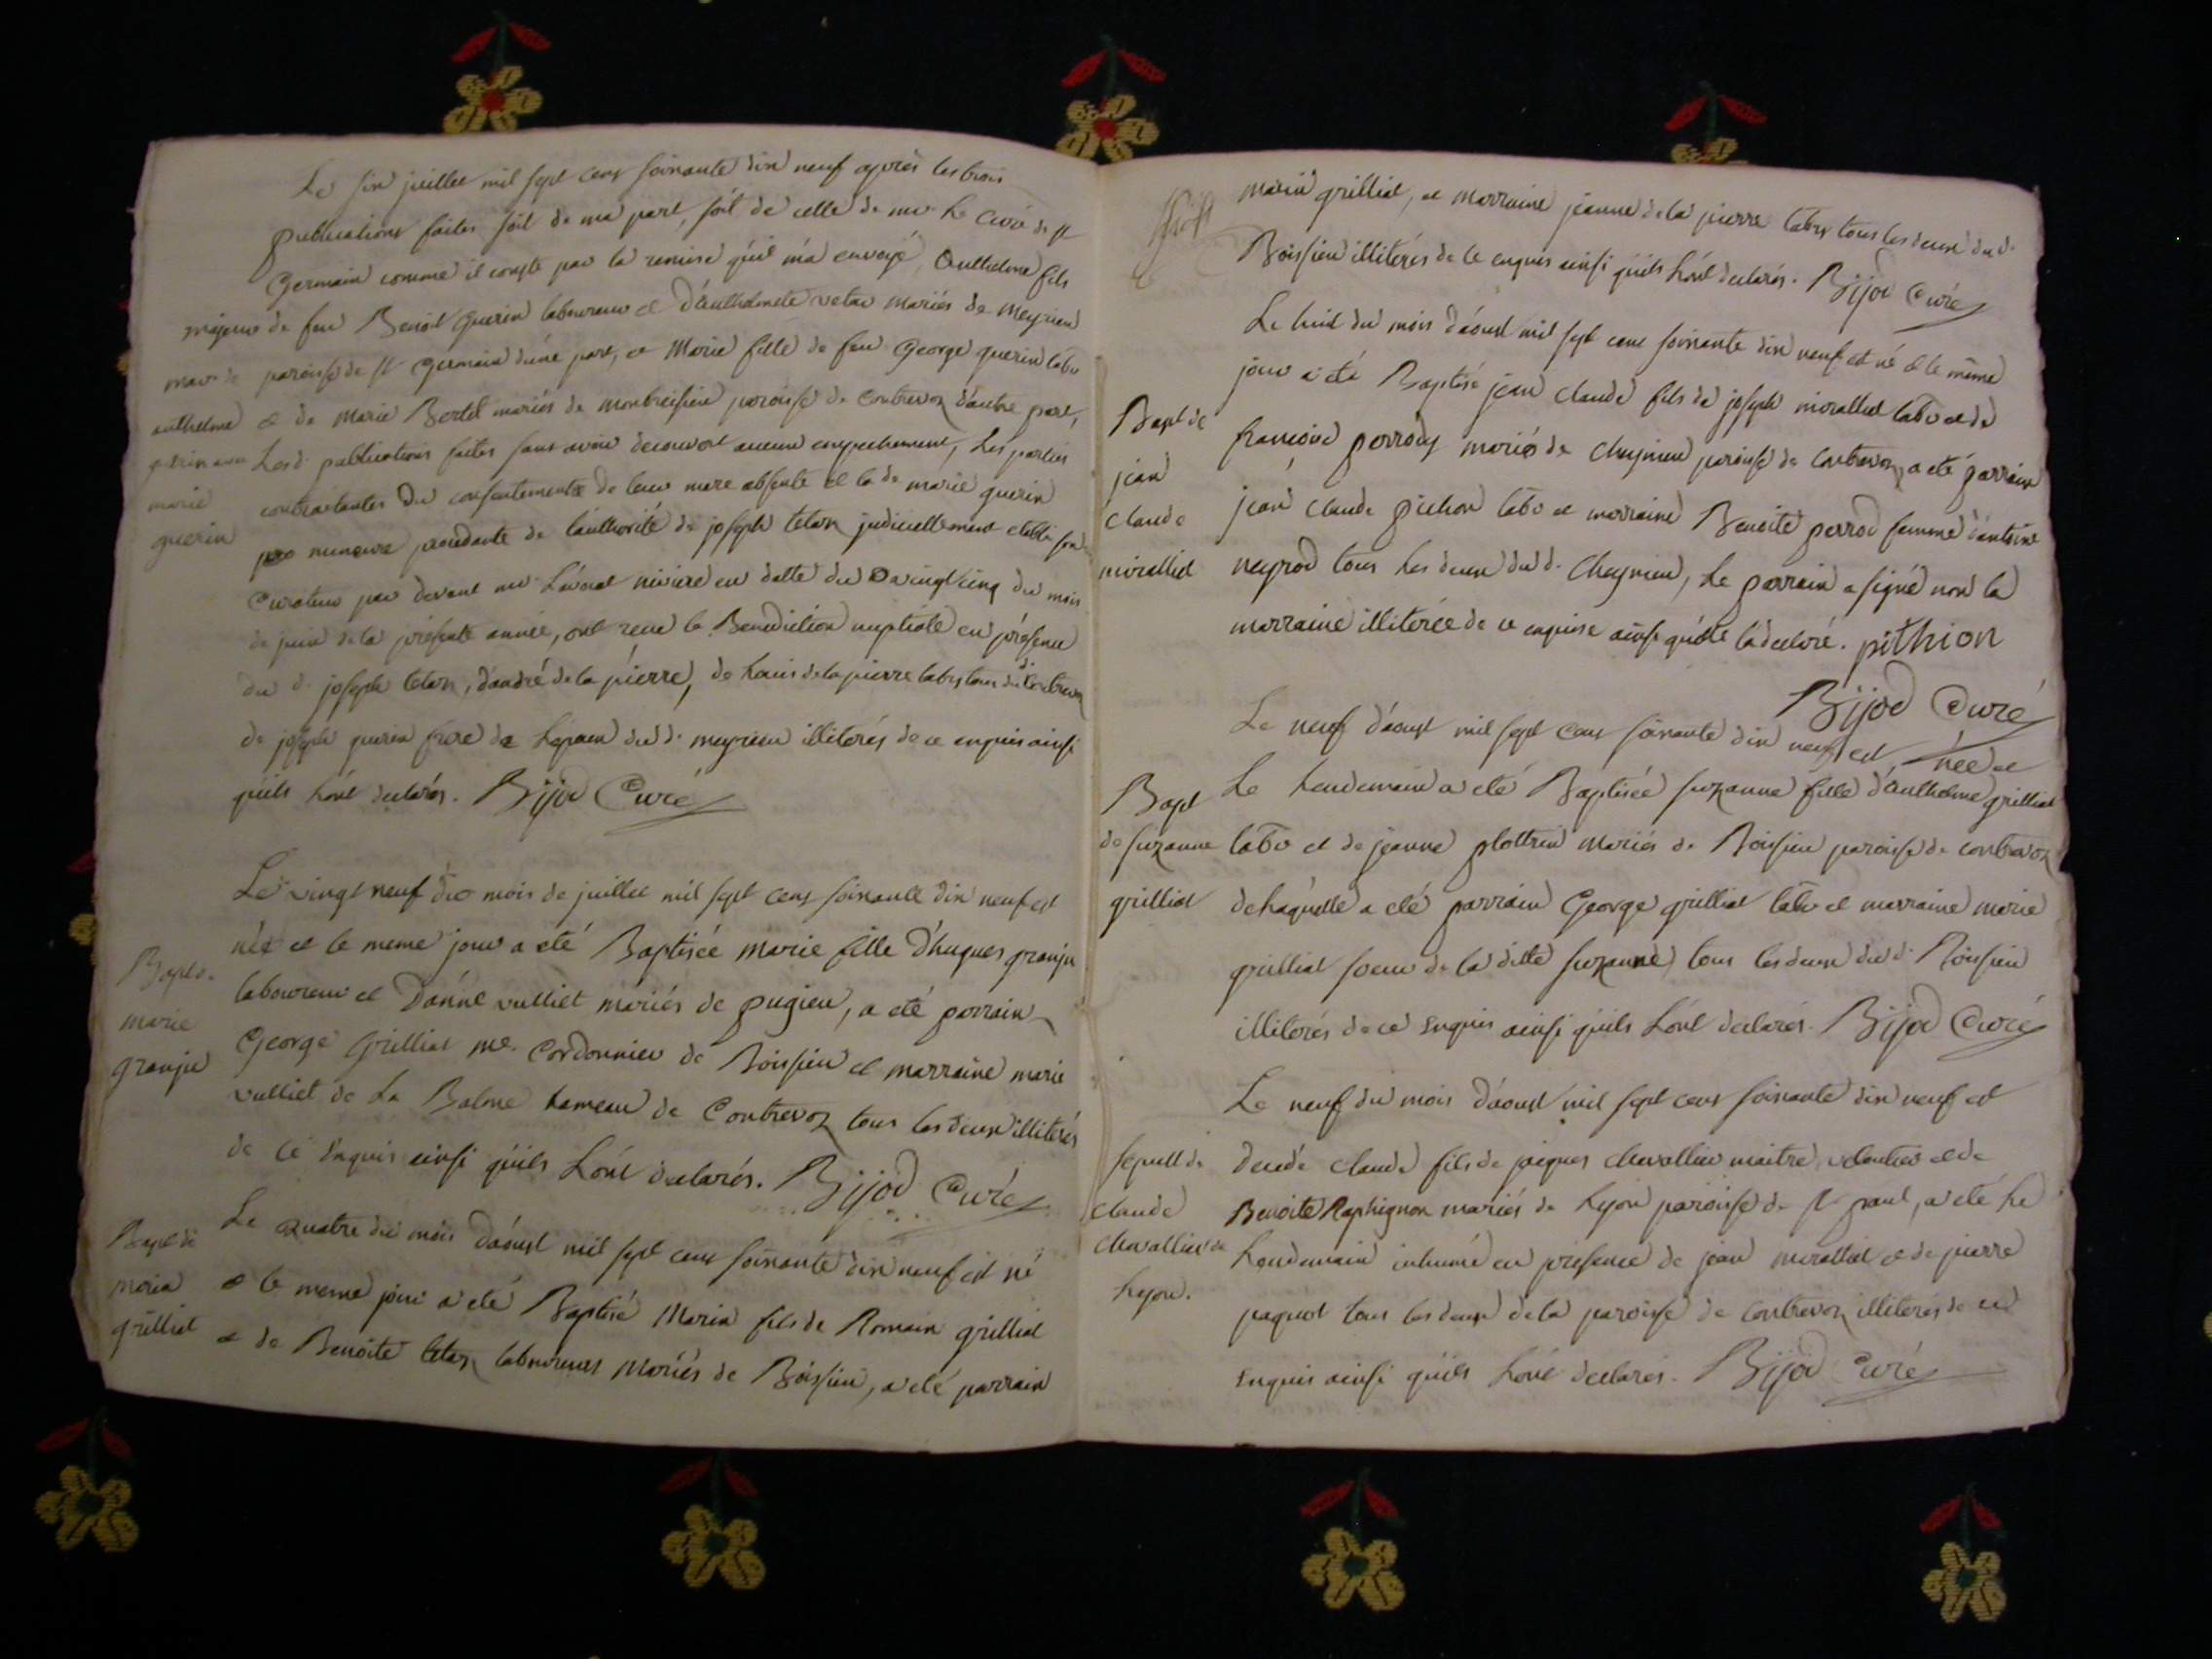 Le six juillet mil sept cens soixante dix neuf après les trois
publications faites soit de ma part, soit de celle de mr. le Curé de st
Germain comme il conste par la remise qu'il m'a envoyé, Anthelme fils
majeur de feu Benoit Guerin laboureur et d'anthelmete vetar mariés de Meyrieu
mar. de
paroisse de st Germain d'une part, et Marie fille de feu George guerin labr
anthelme
et de Marie Bertet mariés de montbreisieu paroisse de Contrevoz d'autre part,
guerin avec
Lesd. publications faites sans avoir decouvert aucun empechement, Les parties
marie
contractantes du consentement de leur mere absente et la de marie guerin
guerin
mineure procedante de l'authorité de joseph tetaz judiciellement etabli son
Curateur par devant mr L'avocat riviere en datte du vingt cinq du mois
de juin de la présente année, ont recu la Benediction nuptiale en présence
du d. joseph tetaz, d'andré de la pierre, de Louis de la pierre labrs tous du d. Contrevoz
de joseph guerin frere de L'epoux du d. meyrieu illiterés de ce enquis ainsi
qu'ils L'ont declarés. Bijod Curé
Le vingt neuf du mois de juillet mil sept cens soixante dix neuf est
née et le meme jour a été Baptisée Marie fille d'hugues granju
Bapt. de
laboureur et D'anne vulliet mariés de pugieu, a eté parrain
marie
George Grilliat me. Cordonnier de Boissieu et marraine marie
granju
vulliet de La Balme hameau de Contrevoz tous les deux illiterés
de ce Enquis ainsi qu'ils L'ont declarés. Bijod Curé
Bapt de
Le quatre du mois d'aoust mil sept cens soixante dix neuf est né
marin
et le meme jour a eté Baptisé Marin fils de Romain grilliat
grilliat
et de Benoite tetaz laboureurs Mariés de Boissieu, a eté parrain
marin grilliat, et marraine jeanne de la pierre labrs tous les deux du d.
Boissieu illiterés de ce enquis ainsi qu'ils L'ont declarés. Bijod Curé
Le huit du mois d'aoust mil sept cens soixante dix neuf est né et le même
jour a eté Baptisé jean claude fils de joseph moralliet labr et de
Bapt de
françoise perrody mariés de Cheynieu paroisse de Contrevoz, a eté parrain
jean
jean claude pichon labr et marraine Benoite perrod femme d'antoine
claude
neyrod tous les deux du d. Cheynieu, Le parrain a signé non la
moralliet
marraine illiterée de ce enquise ainsi qu'elle l'a declaré. pithion
Bijod Curé
Le neuf d'aoust mil sept cens soixante dix neuf est née et
Bapt
Le Lendemain a eté Baptisée suzanne fille d'anthelme grilliat
de suzanne
labr et de jeanne plottrin mariés de Boissieu paroisse de contrevoz
grilliat
de Laquelle a eté parrain George grilliat labr et marraine marie
grilliat soeur de la ditte suzanne, tous les deux du d. Boissieu
illiterés de ce Enquis ainsi qu'ils L'ont declarés. Bijod Curé
Le neuf du mois d'aoust mil sept cens soixante dix neuf est
sepult de
decedé claude fils de jacques chevallier maitre veloutier et de
claude
Benoite Raphignon mariés de Lyon paroisse de St paul, a eté Le
chevallier de
Lendemain inhumé en presence de jean moralliet et de pierre
Lyon.
paquet tous les deux de la paroisse de contrevoz illiterés de ce
Enquis ainsi qu'ils L'ont declarés. Bijod Curé